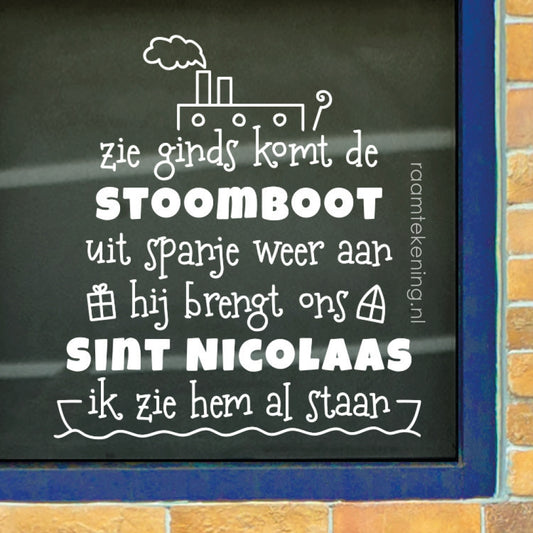 zie ginds komt de
STOOMBOOT
uit spanje weer aan
hij brengt ons
SINT NICOLAAS
ik zie hem al staan
raamtekening.nl